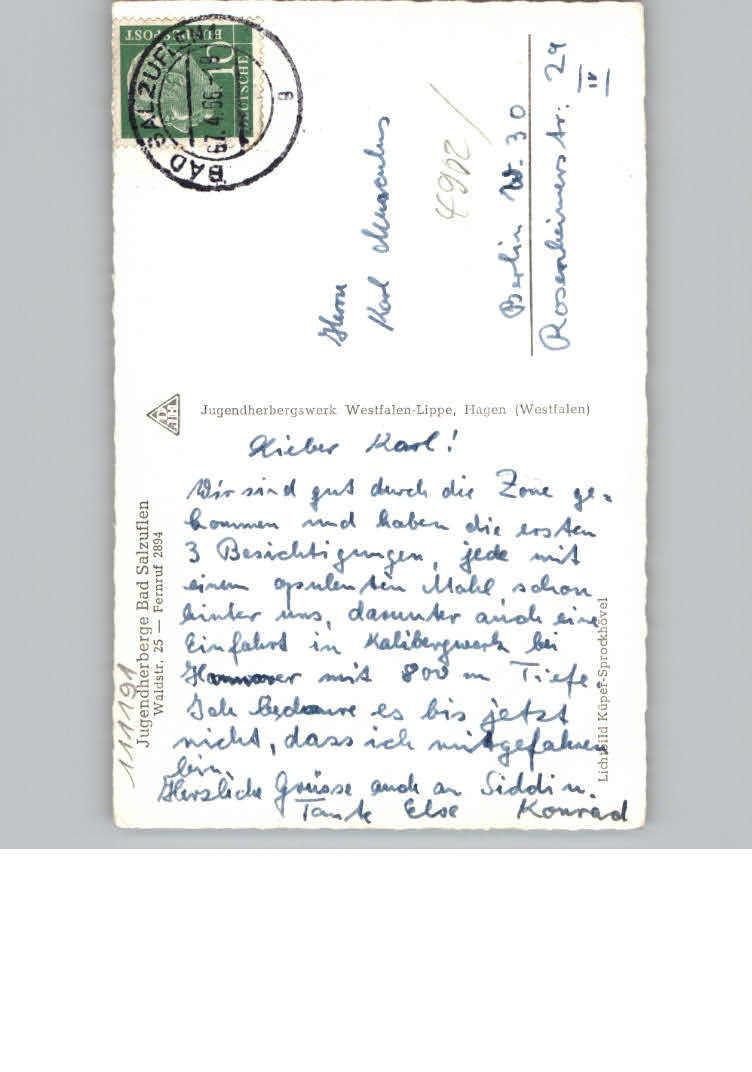 DEUTSCHE
BUNDESPOST
10
BAD SALZUFLEN
a
Herrn
Karl Musculus
4902/
Berlin W. 30
Rosenheimerstr. 29
IV
DJH
Jugendherbergswerk Westfalen-Lippe, Hagen (Westfalen)
Jugendherberge Bad Salzuflen
Waldstr. 25 — Fernruf 2894
111191
Lieber Karl!
Wir sind gut durch die Zone ge-
kommen und haben die ersten
3 Besichtigungen, jede mit
einem opulenten Mahl, schon
hinter uns, darunter auch eine
Einfahrt in Kalibergwerk bei
Hannover mit 800 m Tiefe.
Ich bedaure es bis jetzt
nicht, dass ich mitgefahren
bin.
Herzliche Grüsse auch an Siddi u.
Tante Else Konrad
Lichtbild Küper-Sprockhövel